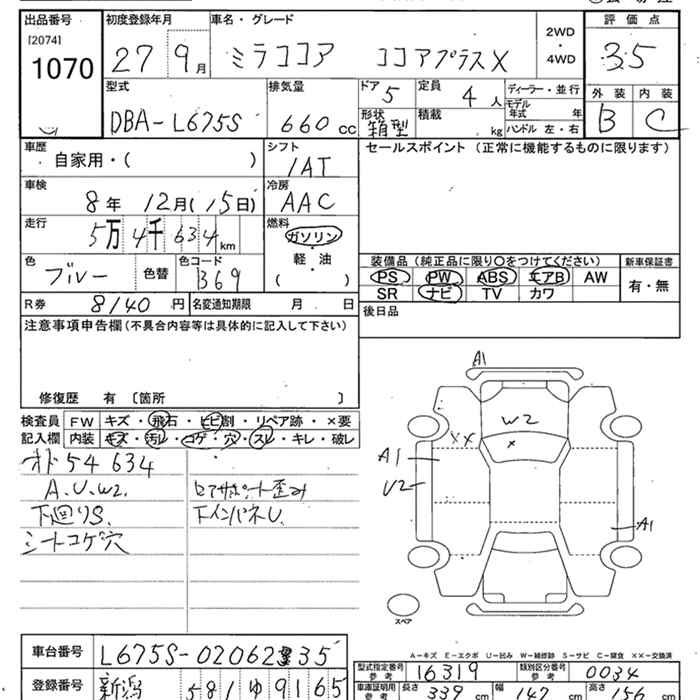 出品番号
[2074]
1070
初度登録年月
27 9月
車名・グレード
ミラココア ココアプラスX
2WD
・
4WD
評価点
3.5
型式
DBA-L675S
排気量
660cc
ドア
5
定員
4人
形状
箱型
積載
kg
ディーラー・並行
モデル
年式 年
ハンドル 左・右
外装 内装
B C
車歴
自家用・( )
シフト
IAT
車検
8年 12月(15日)
冷房
AAC
走行
5万4千634km
燃料
ガソリン
・
軽・油
( )
色
ブルー
色替
色コード
B69
R券 8140円
名変通知期限 月 日
セールスポイント (正常に機能するものに限ります)
装備品(純正品に限り〇をつけてください)
PS PW ABS エアB AW
SR ナビ TV カワ
新車保証書
有・無
後日品
注意事項申告欄(不具合内容等は具体的に記入して下さい)
修復歴 有 〔箇所 〕
検査員
記入欄
FW キズ・飛石・ヒビ割・リペア跡・×要
内装 キズ・汚レ・コゲ・穴・スレ・キレ・破レ
オド54634
A.U.W2.
下廻りS.
シートコゲ穴
コアサポート歪み
下インパネU.
A1
W2
XX
×
A1
U2
A1
スペア
A-キズ E-エクボ U-凹み W-補修跡 S-サビ C-腐食 ××-交換済
車台番号
L675S-0206235
登録番号
新潟 581 ゆ 9165
型式指定番号
参考
16319
類別区分番号
参考
0034
車庫証明用
参考
長さ 339cm
幅 147cm
高さ 156cm